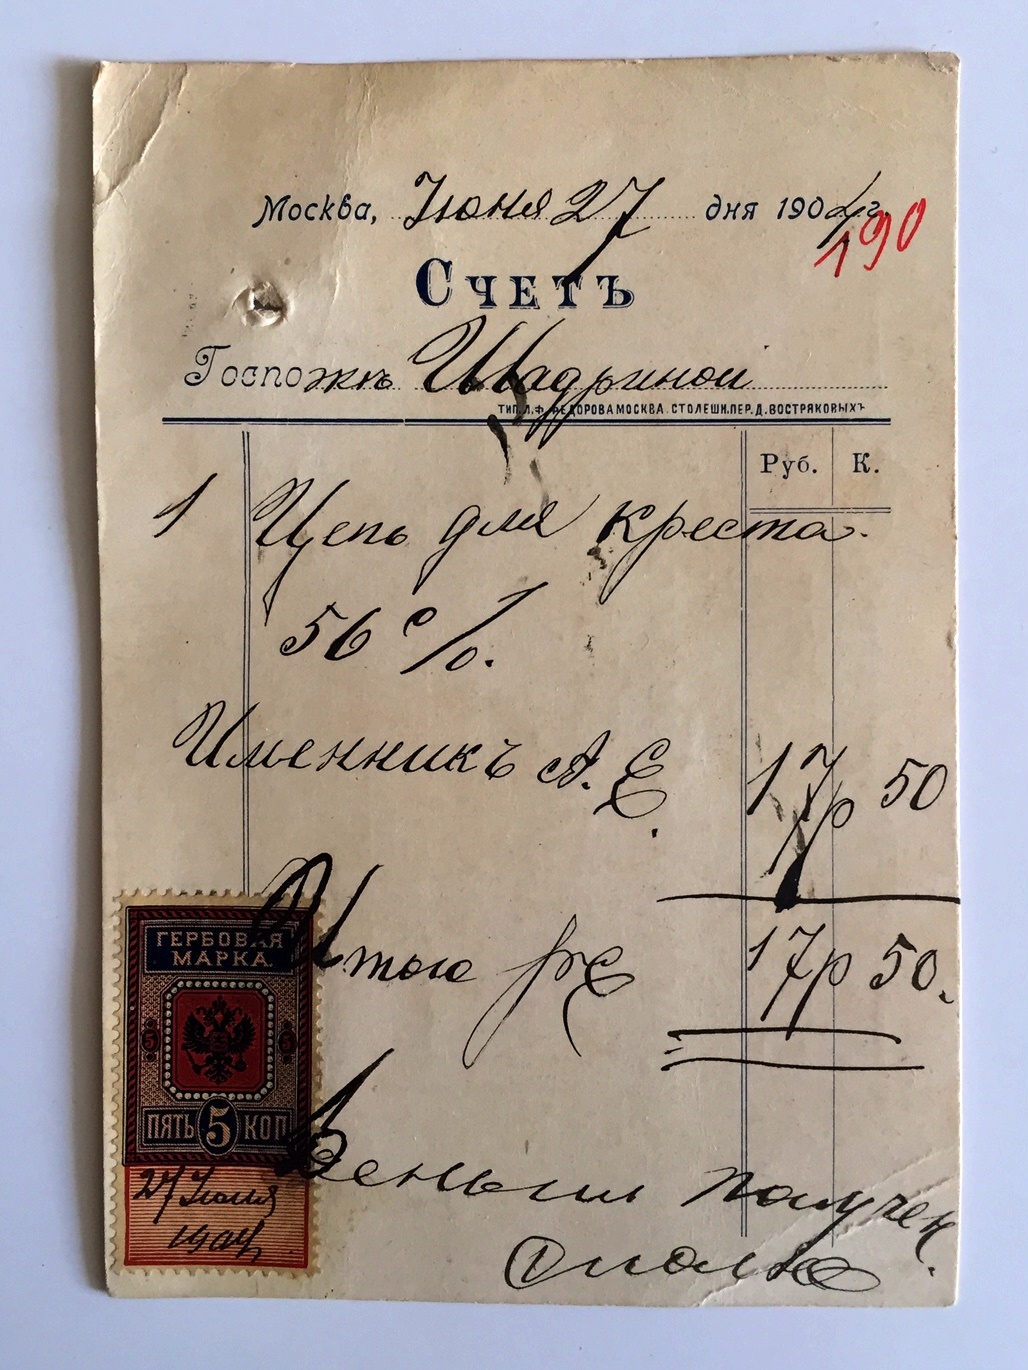 Москва, Июня 27 дня 1904 г.
190
Счетъ
Госпожѣ Шадриной
ТИП. Л. Ф. ФЕДОРОВА МОСКВА. СТОЛЕШН. ПЕР. Д. ВОСТРЯКОВЫХЪ
Руб. К.
1 Цепь для креста.
56%.
Именникъ А. Е. 17р 50
Итого 17р 50.
ГЕРБОВАЯ
МАРКА.
5 5
ПЯТЬ 5 КОП
27 Июня
1904
Деньги получен